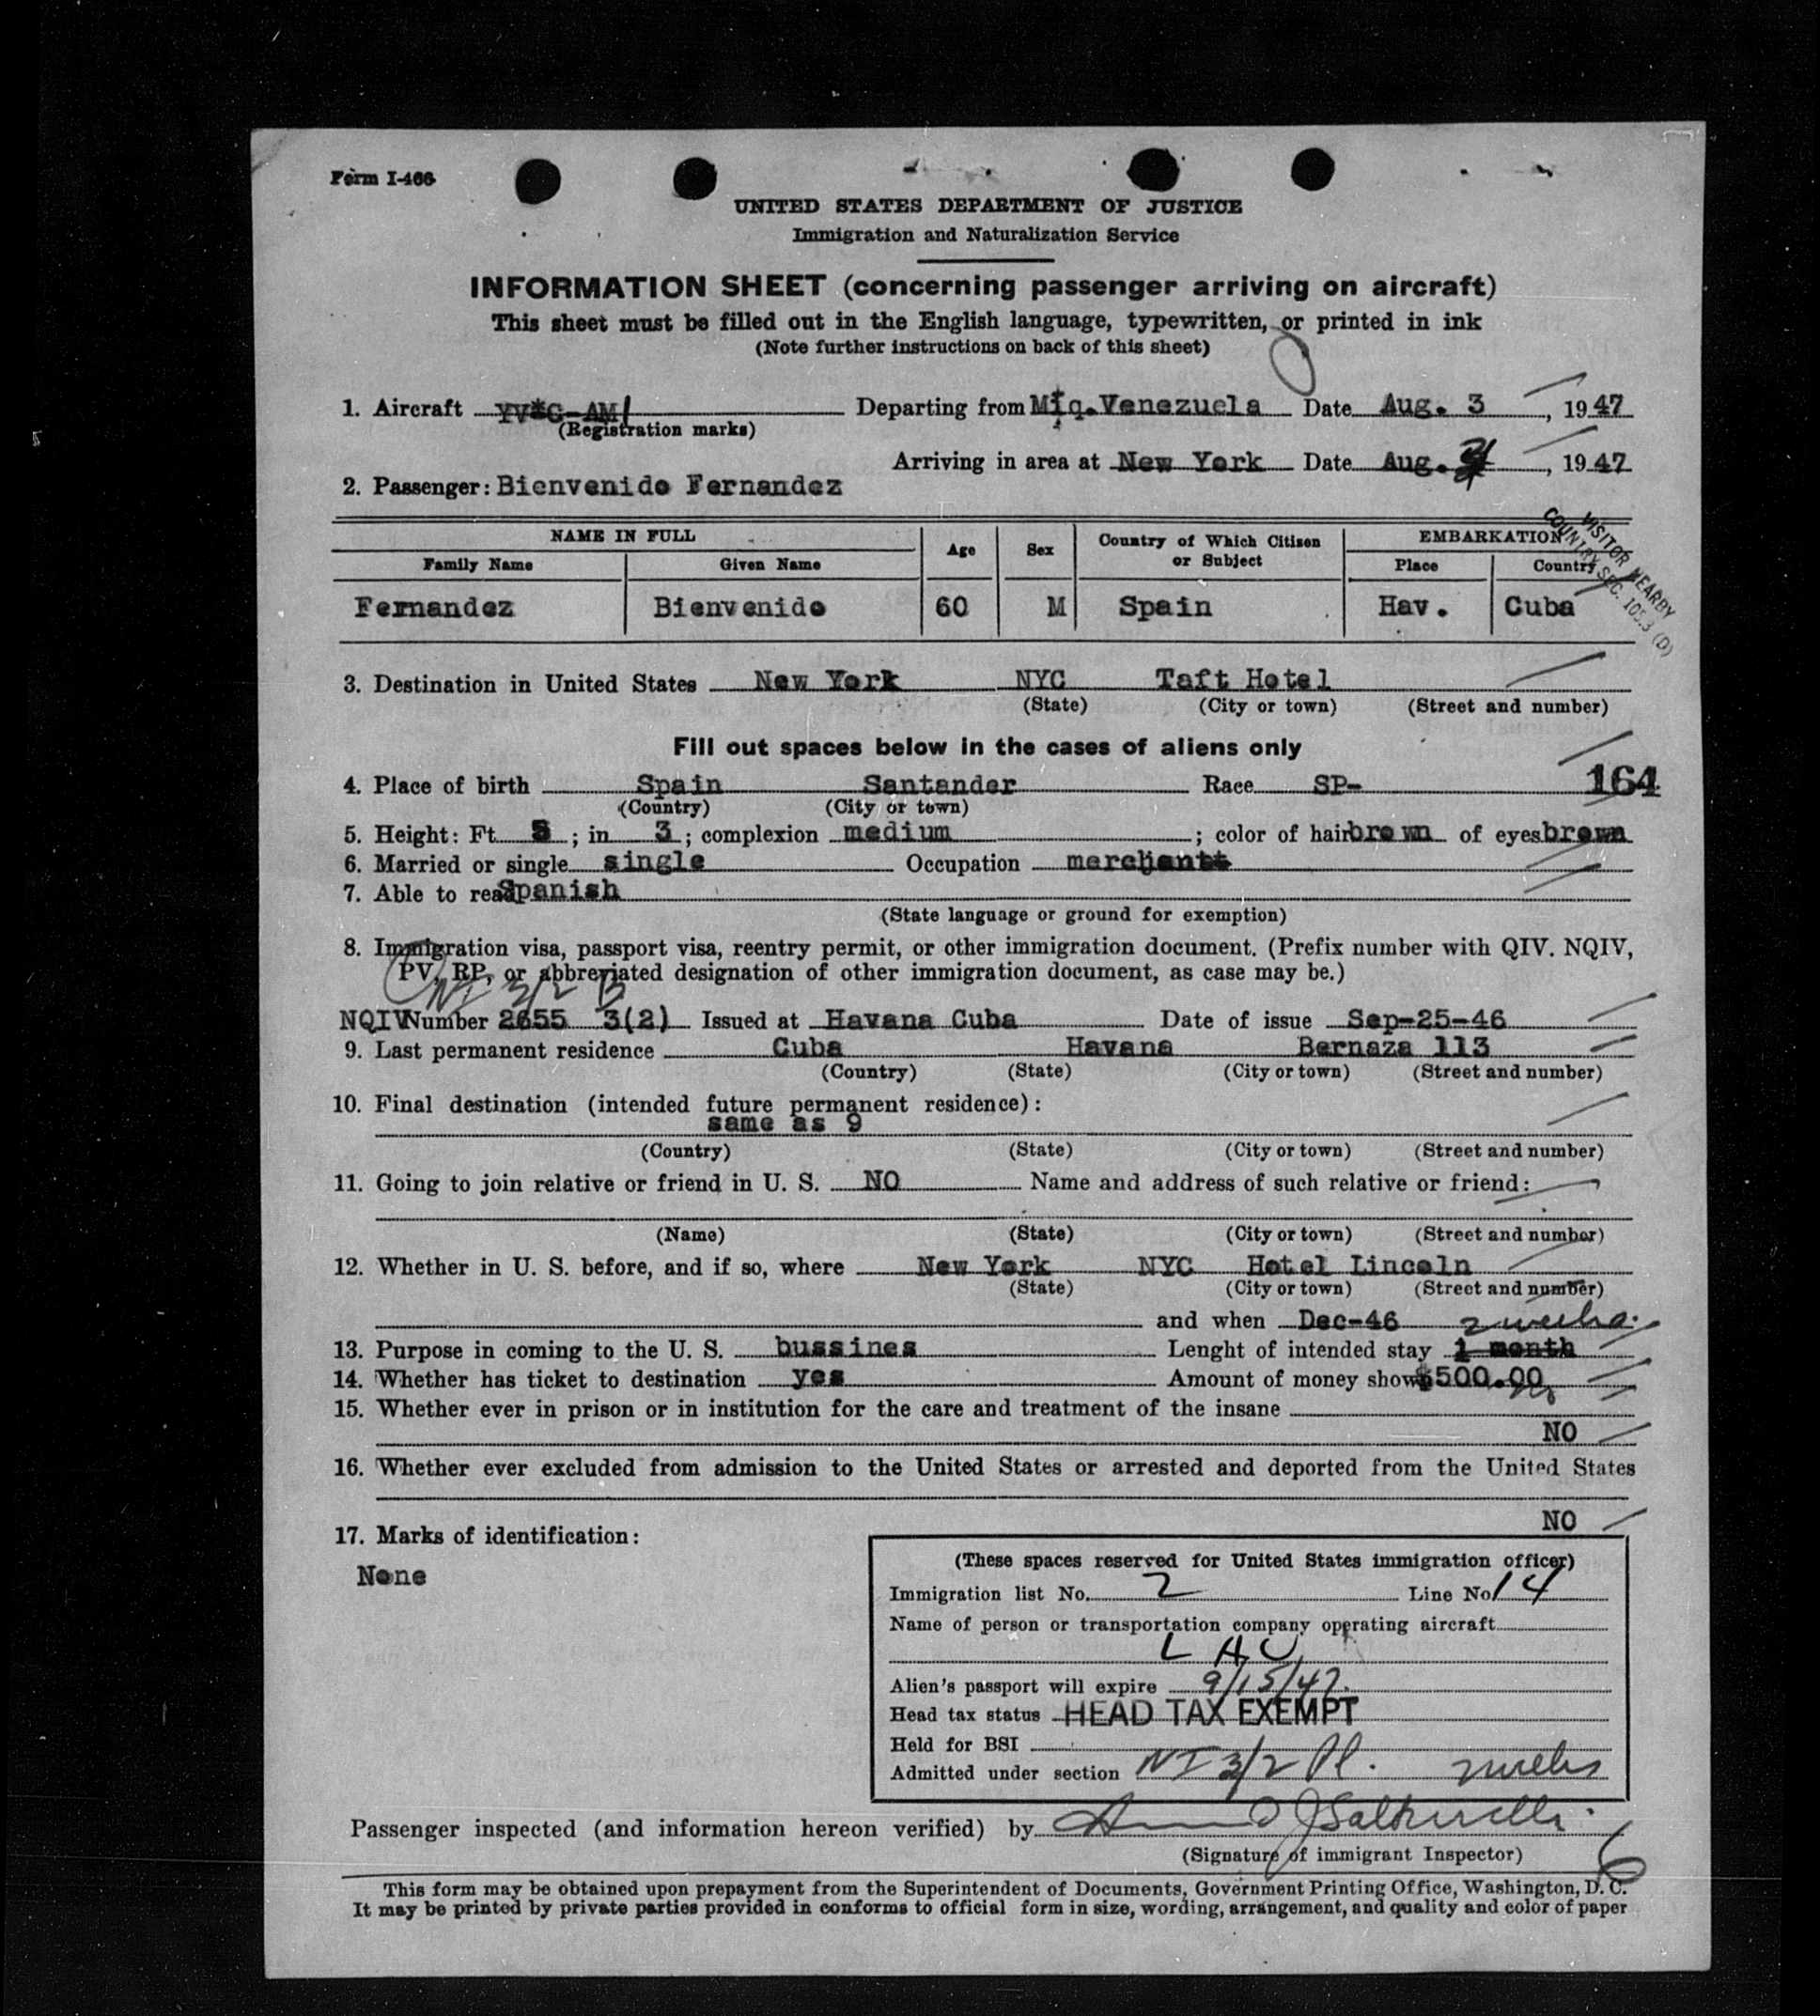 Form I-466
UNITED STATES DEPARTMENT OF JUSTICE
Immigration and Naturalization Service
INFORMATION SHEET (concerning passenger arriving on aircraft)
This sheet must be filled out in the English language, typewritten, or printed in ink
(Note further instructions on back of this sheet)
1. Aircraft YV*C-AM Departing from Miq. Venezuela Date Aug. 3, 1947
(Registration marks)
Arriving in area at New York Date Aug. 4, 1947
2. Passenger: Bienvenido Fernandez
NAME IN FULL Age Sex Country of Which Citizen or Subject EMBARKATION
Family Name Given Name Place Country
VISITOR NEARBY
COUNTRY SEC. 105.3 (D)
Fernandez Bienvenido 60 M Spain Hav. Cuba
3. Destination in United States New York NYC Taft Hotel
(State) (City or town) (Street and number)
Fill out spaces below in the cases of aliens only
4. Place of birth Spain Santander Race SP- 164
(Country) (City or town)
5. Height: Ft. 5 ; in 3 ; complexion medium ; color of hair brown of eyes brown
6. Married or single single Occupation merchant
7. Able to read Spanish
(State language or ground for exemption)
8. Immigration visa, passport visa, reentry permit, or other immigration document. (Prefix number with QIV. NQIV,
PV, RP, or abbreviated designation of other immigration document, as case may be.)
NI 3/2 B
NQIV Number 2655 3(2) Issued at Havana Cuba Date of issue Sep-25-46
9. Last permanent residence Cuba Havana Bernaza 113
(Country) (State) (City or town) (Street and number)
10. Final destination (intended future permanent residence):
same as 9
(Country) (State) (City or town) (Street and number)
11. Going to join relative or friend in U. S. NO Name and address of such relative or friend:
(Name) (State) (City or town) (Street and number)
12. Whether in U. S. before, and if so, where New York NYC Hotel Lincoln
(State) (City or town) (Street and number)
and when Dec-46 2 weeks.
13. Purpose in coming to the U. S. bussines Lenght of intended stay 1 month
14. Whether has ticket to destination yes Amount of money shown $500.00
15. Whether ever in prison or in institution for the care and treatment of the insane
NO
16. Whether ever excluded from admission to the United States or arrested and deported from the United States
NO
17. Marks of identification:
None
(These spaces reserved for United States immigration officer)
Immigration list No. 2 Line No. 14
Name of person or transportation company operating aircraft
L A V
Alien's passport will expire 9/15/47.
Head tax status HEAD TAX EXEMPT
Held for BSI
Admitted under section NI 3/2 Pl. 2 weeks
Passenger inspected (and information hereon verified) by
(Signature of immigrant Inspector)
6
This form may be obtained upon prepayment from the Superintendent of Documents, Government Printing Office, Washington, D. C.
It may be printed by private parties provided in conforms to official form in size, wording, arrangement, and quality and color of paper